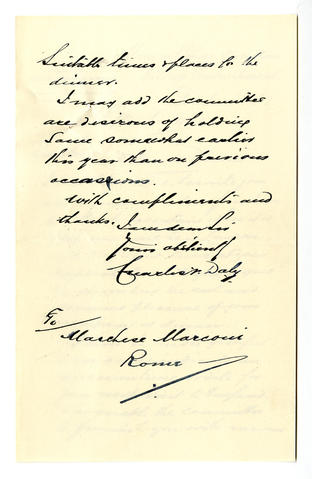 Suitable times & places for the
dinner.
I may add the committee
are desirous of holding
same somewhat earlier
this year than on previous
occasions.
With compliments and
thanks. I am dear Sir
Yours obediently
Charles Daly
To
Marchese Marconi
Rome